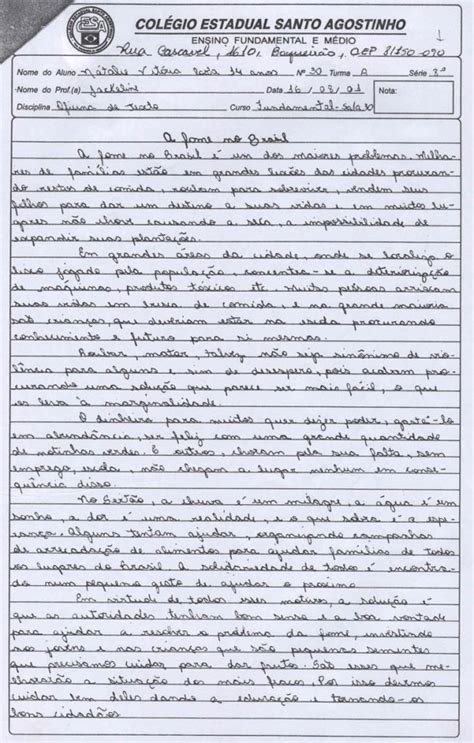 COLÉGIO ESTADUAL SANTO AGOSTINHO
ENSINO FUNDAMENTAL E MÉDIO
Rua Cascavel, 1610, Boqueirão, CEP 81750-090
1
Nome do Aluno Natálie Vitória 14 anos Nº 30 Turma A Série 8ª
Nome do Prof.(a) Jackeline Data 16 / 08 / 01 Nota:
Disciplina Oficina de Texto Curso Fundamental
A fome no Brasil
A fome no Brasil é um dos maiores problemas. Milha-
res de famílias estão em grandes lixões das cidades procuran-
do restos de comida, roubam para sobreviver, vendem seus
filhos para dar um destino a suas vidas e em muitos lu-
gares não chove causando a seca, a impossibilidade de
expandir suas plantações.
Em grandes áreas da cidade, onde se localiza o
lixo jogado pela população, concentra-se a deteriorização
de máquinas, produtos tóxicos etc. Muitas pessoas arriscam
suas vidas em busca de comida, e na grande maioria
são crianças, que deveriam estar na escola procurando
conhecimento e futuro para si mesmas.
Roubar, matar, talvez não seja sinônimo de vio-
lência para alguns e sim de desespero, pois acabam pro-
curando uma solução que parece ser mais fácil, o que
os leva à marginalidade.
O dinheiro para muitos quer dizer poder, gastá-lo
em abundância, ser feliz com uma grande quantidade
de notinhas verdes. E outros, choram pela sua falta, sem
emprego, escola, não chegam a lugar nenhum em conse-
quência disso.
No Sertão, a chuva é um milagre, a água é um
sonho, a dor é uma realidade, e o que sobra é a espe-
rança. Alguns tentam ajudar, organizando campanhas
de arrecadação de alimentos para ajudar famílias de todos
os lugares do Brasil. A solidariedade de todos é encontra-
da num pequeno gesto de ajudar o próximo.
Em virtude de todos esses motivos, a solução é
que as autoridades tenham bom senso e a boa vontade
para ajudar a resolver o problema da fome, investindo
nos jovens e nas crianças que são pequenas sementes
que precisamos cuidar para dar frutos. São eles que me-
lhorarão a situação dos mais fracos. Por isso devemos
cuidar bem deles dando a educação e tornando-os
bons cidadãos